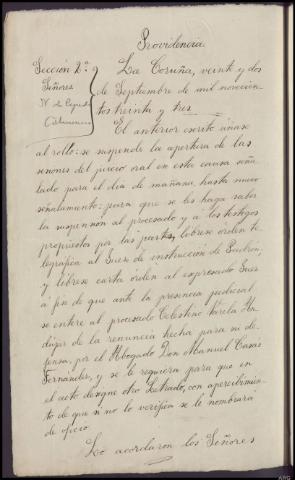 Providencia
Sección 2ª
Señores
La Coruña, veinte y dos
de Septiembre de mil novecien
tos treinta y tres
El anterior escrito únase
al rollo: se suspende la apertura de las
sesiones del juicio oral en esta causa seña
lado para el día de mañana, hasta nuevo
señalamiento: para que se les haga saber
la suspensión al procesado y a los testigos
propuestos por las partes, líbrese orden te
legráfica al Juez de instrucción de Padrón,
y líbrese carta orden al expresado Juez
a fin de que ante la presencia judicial
se entere al procesado Celestino Varela
de la renuncia hecha para su de
fensa, por el Abogado Don Manuel Casás
Fernández, y se le requiera para que en
el acto designe otro Letrado, con apercibimien
to de que si no lo verifica se le nombrará
de oficio.
Lo acordaron los Señores